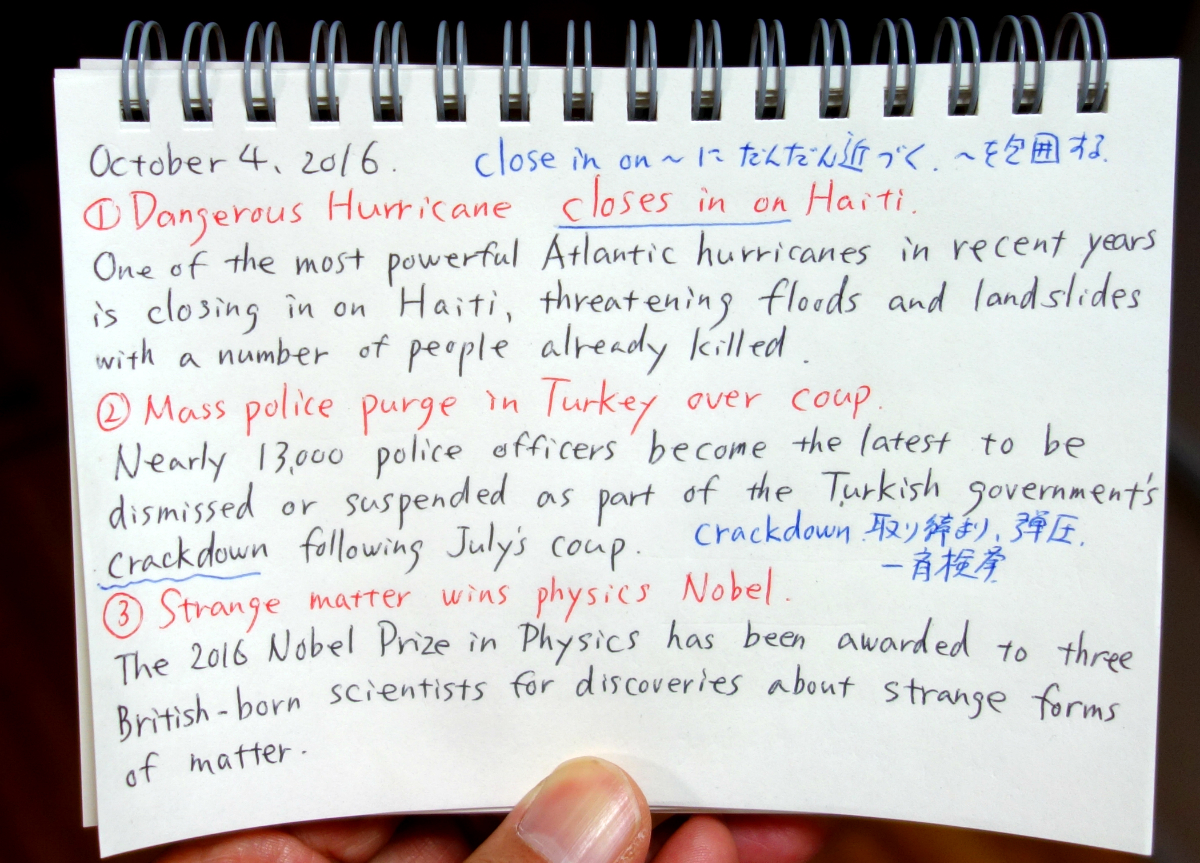 October 4, 2016. close in on ~に だんだん近づく. ~を包囲する.
① Dangerous Hurricane closes in on Haiti.
One of the most powerful Atlantic hurricanes in recent years
is closing in on Haiti, threatening floods and landslides
with a number of people already killed.
② Mass police purge in Turkey over coup.
Nearly 13,000 police officers become the latest to be
dismissed or suspended as part of the Turkish government's
crackdown following July's coup. crackdown 取り締まり、弾圧.
一斉検挙
③ Strange matter wins physics Nobel.
The 2016 Nobel Prize in Physics has been awarded to three
British-born scientists for discoveries about strange forms
of matter.